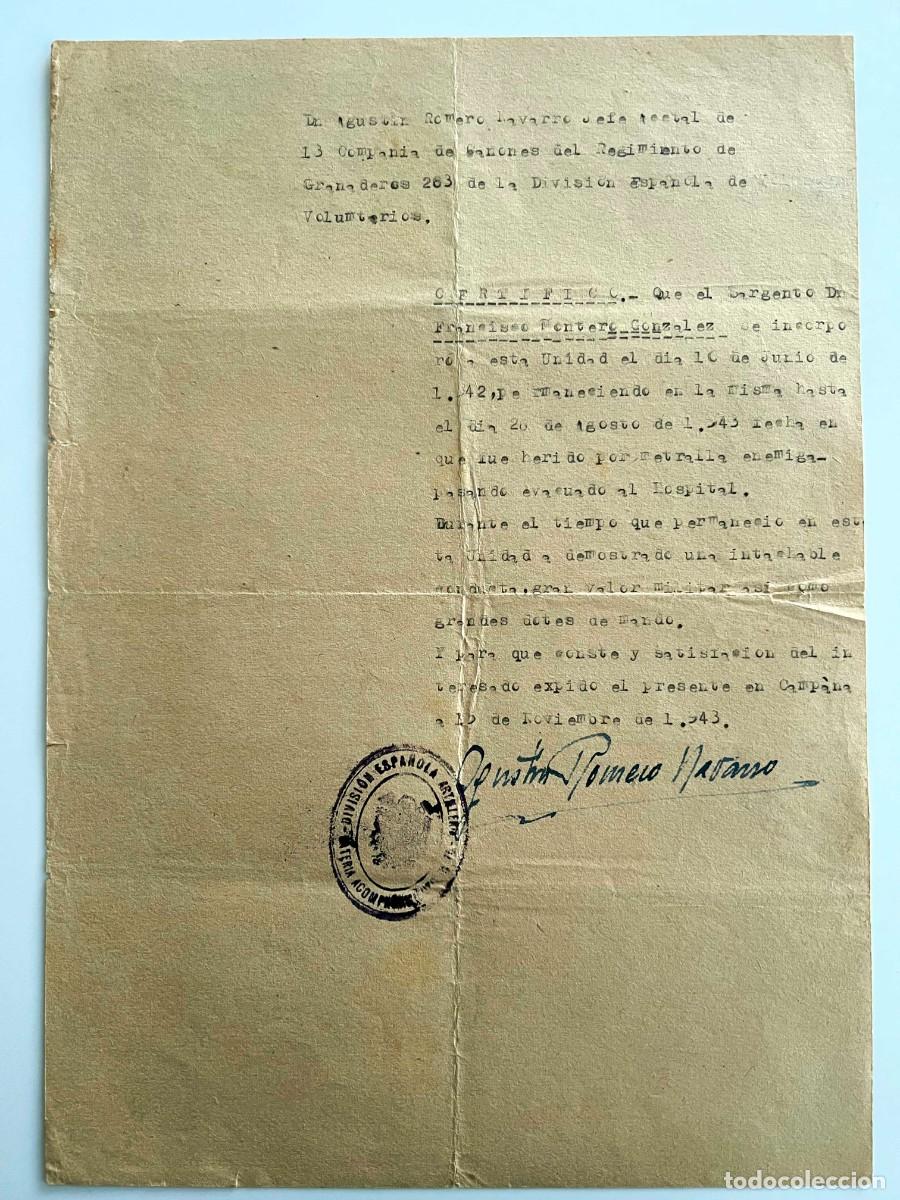 Dn Agustin Romero Navarro Jefe Acctal de
13 Compania de Cañones del Regimiento de
Granaderos 263 de la División Española de
Volumtarios.
C E R T I F I C O.- Que el Sargento Dn
Francisco Montero Gonzalez se incorpo
ro a esta Unidad el dia 10 de Junio de
1.942,pe rmaneciendo en la misma hasta
el dia 26 de Agosto de 1.943 fecha en
que fue herido por metralla enemiga-
pasando evacuado al Hospital.
Durante el tiempo que permanecio en est
ta Unidad a demostrado una intachable
conducta,gran valor militar asi como
grandes dotes de mando.
Y para que conste y satisfacion del in
teresado expido el presente en Campàna
a 15 de Noviembre de 1.943.
Agustin Romero Navarro
DIVISIÓN ESPAÑOLA ARTILLERIA
BATERIA ACOMPAÑAMIENTO
todocoleccion